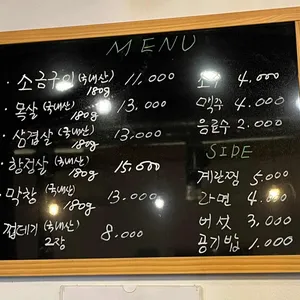 MENU
· 소금구이 (국내산) 180g 11,000
· 목살 (국내산) 180g 13,000
· 삼겹살 (국내산) 180g 13,000
· 항정살 (국내산) 180g 15,000
· 막창 (국내산) 180g 13,000
껍데기 (국내산) 2장 8,000
소주 4,000
맥주 4,000
음료수 2,000
SIDE
계란찜 5,000
라면 4,000
버섯 3,000
공기밥 1,000